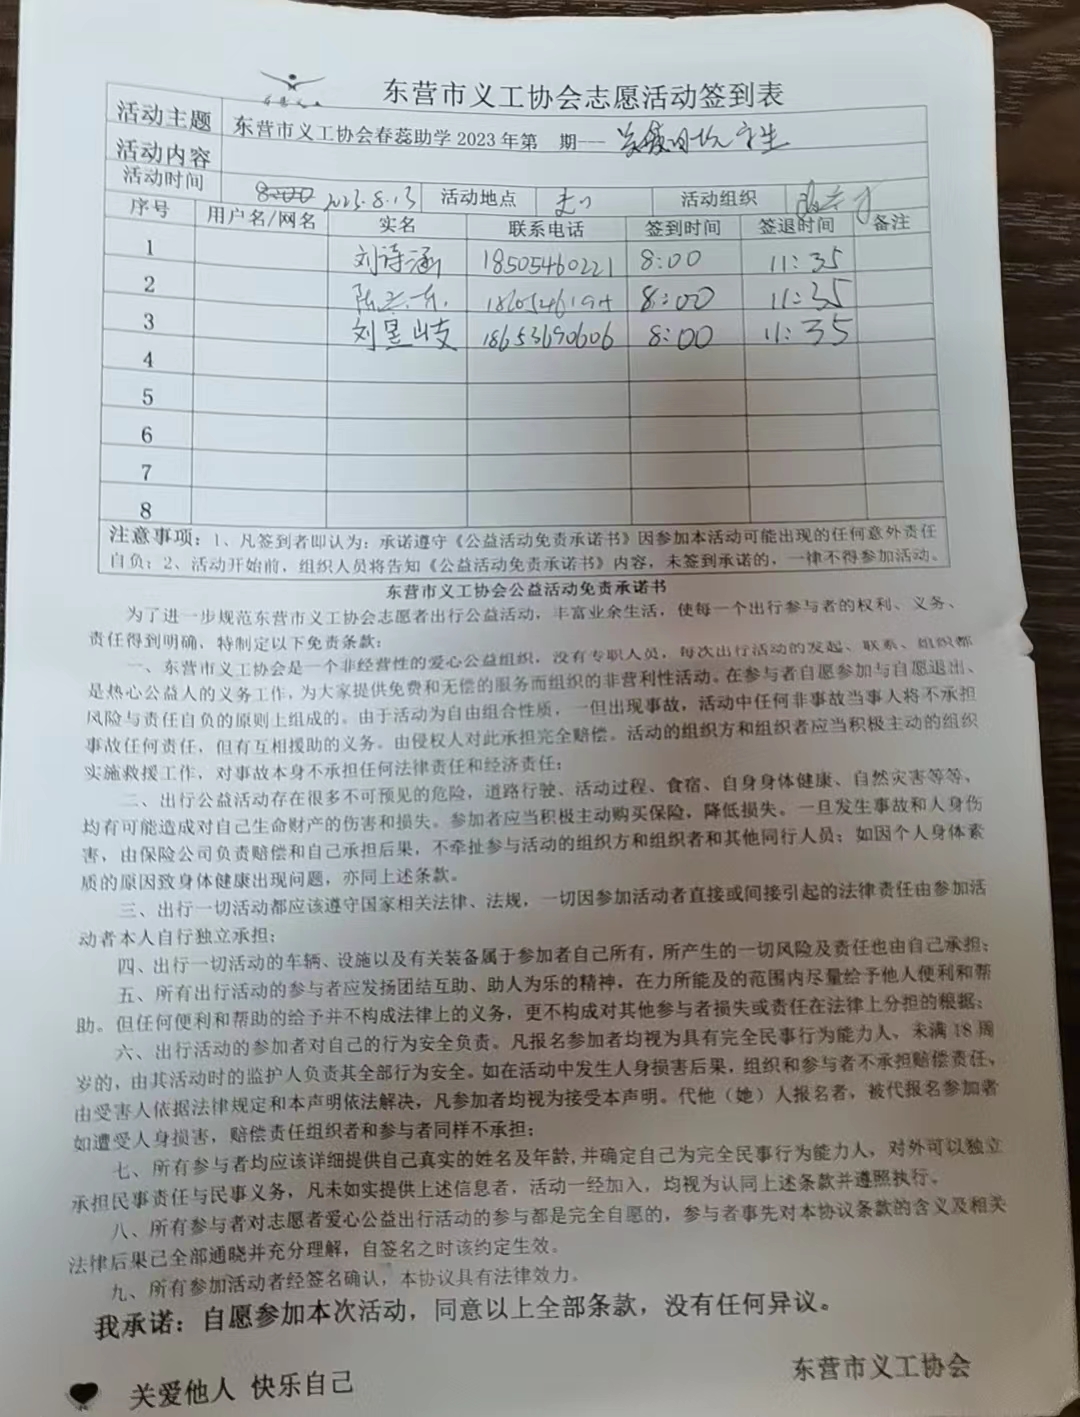 东营市义工协会志愿活动签到表
活动主题 东营市义工协会春蕊助学2023年第 期---
活动内容
活动时间 2023.8.13 活动地点 活动组织
序号 用户名/网名 实名 联系电话 签到时间 签退时间 备注
1 刘诗涵 18505460221 8:00 11:35
2 8:00 11:35
3 刘昱岐 18653690606 8:00 11:35
4
5
6
7
8
注意事项：1、凡签到者即认为：承诺遵守《公益活动免责承诺书》因参加本活动可能出现的任何意外责任
自负；2、活动开始前，组织人员将告知《公益活动免责承诺书》内容，未签到承诺的，一律不得参加活动。
东营市义工协会公益活动免责承诺书
为了进一步规范东营市义工协会志愿者出行公益活动，丰富业余生活，使每一个出行参与者的权利、义务、
责任得到明确，特制定以下免责条款：
一、东营市义工协会是一个非经营性的爱心公益组织，没有专职人员，每次出行活动的发起、联系、组织都
是热心公益人的义务工作，为大家提供免费和无偿的服务而组织的非营利性活动。在参与者自愿参加与自愿退出、
风险与责任自负的原则上组成的。由于活动为自由组合性质，一但出现事故，活动中任何非事故当事人将不承担
事故任何责任，但有互相援助的义务。由侵权人对此承担完全赔偿。活动的组织方和组织者应当积极主动的组织
实施救援工作，对事故本身不承担任何法律责任和经济责任；
二、出行公益活动存在很多不可预见的危险，道路行驶、活动过程、食宿、自身身体健康、自然灾害等等，
均有可能造成对自己生命财产的伤害和损失。参加者应当积极主动购买保险，降低损失。一旦发生事故和人身伤
害，由保险公司负责赔偿和自己承担后果，不牵扯参与活动的组织方和组织者和其他同行人员；如因个人身体素
质的原因致身体健康出现问题，亦同上述条款。
三、出行一切活动都应该遵守国家相关法律、法规，一切因参加活动者直接或间接引起的法律责任由参加活
动者本人自行独立承担；
四、出行一切活动的车辆、设施以及有关装备属于参加者自己所有，所产生的一切风险及责任也由自己承担；
五、所有出行活动的参与者应发扬团结互助、助人为乐的精神，在力所能及的范围内尽量给予他人便利和帮
助。但任何便利和帮助的给予并不构成法律上的义务，更不构成对其他参与者损失或责任在法律上分担的根据；
六、出行活动的参加者对自己的行为安全负责。凡报名参加者均视为具有完全民事行为能力人，未满18周
岁的，由其活动时的监护人负责其全部行为安全。如在活动中发生人身损害后果，组织和参与者不承担赔偿责任，
由受害人依据法律规定和本声明依法解决，凡参加者均视为接受本声明。代他（她）人报名者，被代报名参加者
如遭受人身损害，赔偿责任组织者和参与者同样不承担；
七、所有参与者均应该详细提供自己真实的姓名及年龄，并确定自己为完全民事行为能力人，对外可以独立
承担民事责任与民事义务，凡未如实提供上述信息者，活动一经加入，均视为认同上述条款并遵照执行。
八、所有参与者对志愿者爱心公益出行活动的参与都是完全自愿的，参与者事先对本协议条款的含义及相关
法律后果已全部通晓并充分理解，自签名之时该约定生效。
九、所有参加活动者经签名确认，本协议具有法律效力。
我承诺：自愿参加本次活动，同意以上全部条款，没有任何异议。
关爱他人 快乐自己
东营市义工协会